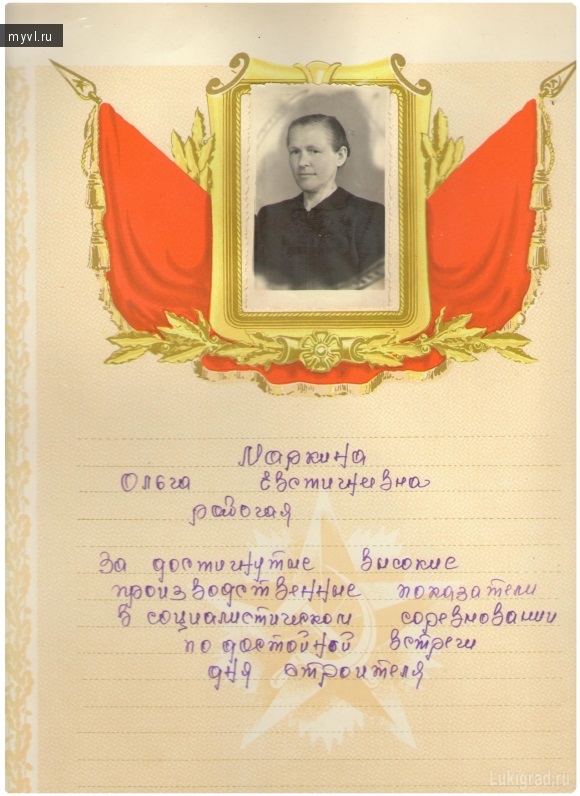 myvl.ru
Маркина
Ольга Евстигневна
рабочая
За достигнутые высокие
производственные показатели
в социалистическом соревновании
по достойной встречи
дня строителя
Lukigrad.ru